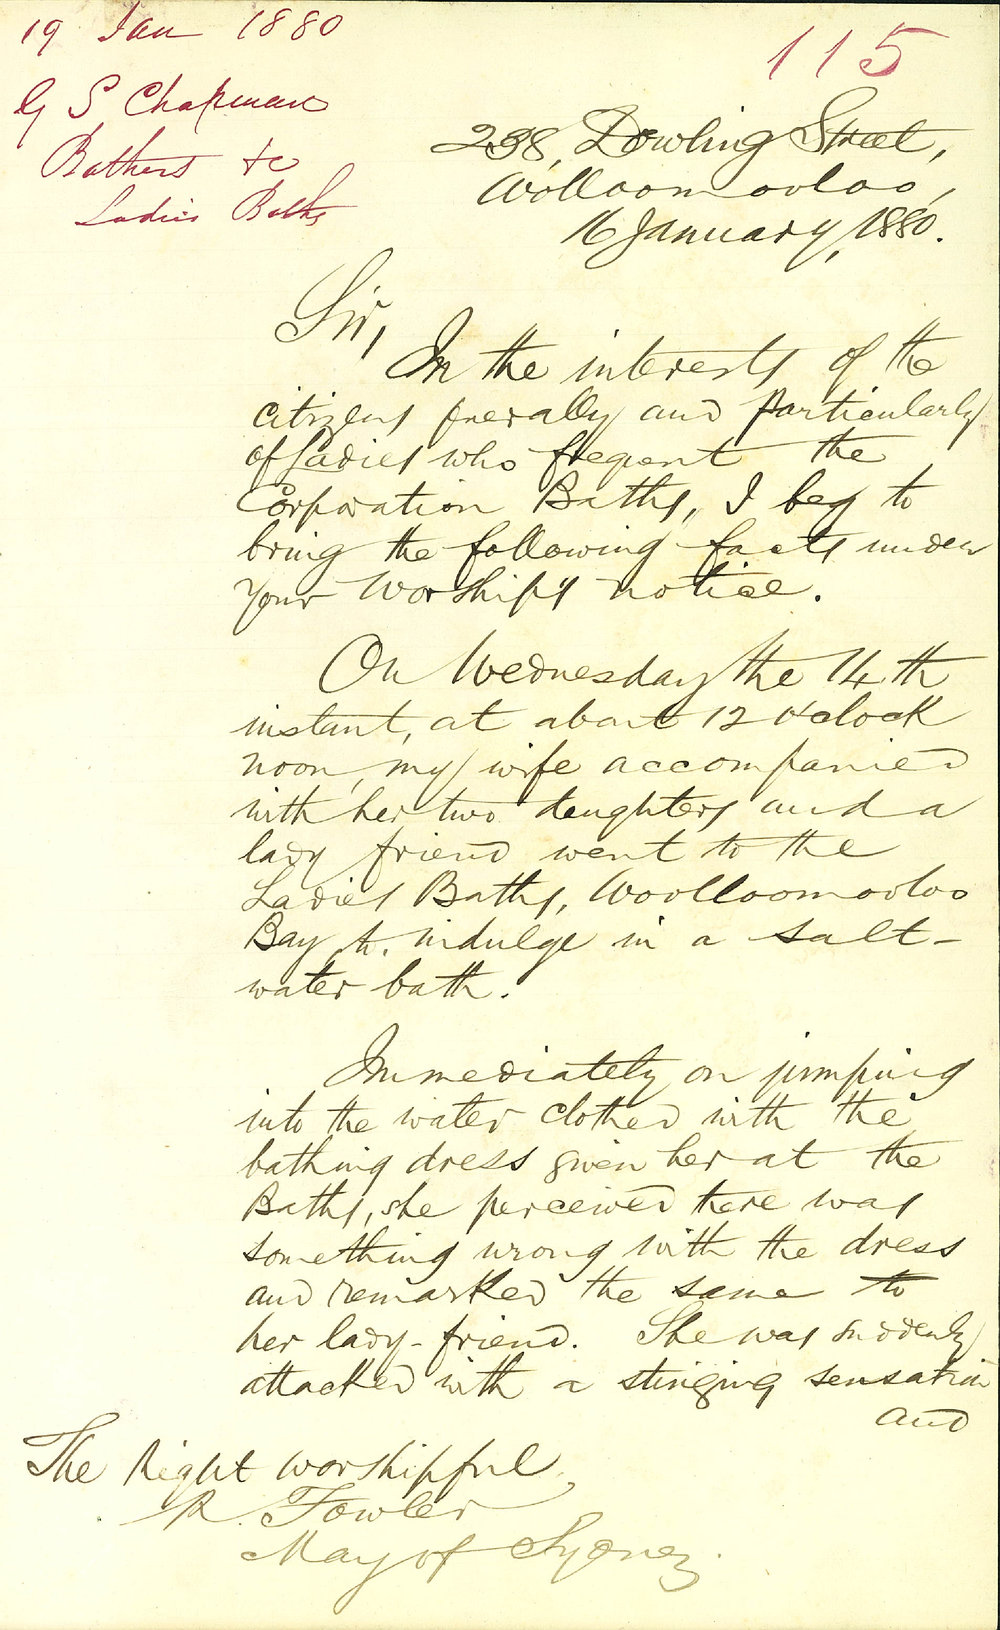 19 Jan 1880
115
G S Chapman
Bathers &c
Ladies Baths
238, Dowling Street,
Woolloomooloo,
16 January, 1880.
Sir,
In the interests of the
citizens generally and particularly
of Ladies who frequent the
Corporation Baths, I beg to
bring the following facts under
Your Worships notice.
On Wednesday the 14th
instant, at about 12 o'clock
noon, my wife accompanied
with her two daughters and a
lady friend went to the
Ladies Baths, Woolloomooloo
Bay to indulge in a salt-
water bath.
Immediately on jumping
into the water clothed with the
bathing dress given her at the
Baths, she perceived there was
something wrong with the dress
and remarked the same to
her lady-friend. She was suddenly
attacked with a stinging sensation
and
The Right Worshipful,
R. Fowler
Mayor of Sydney.